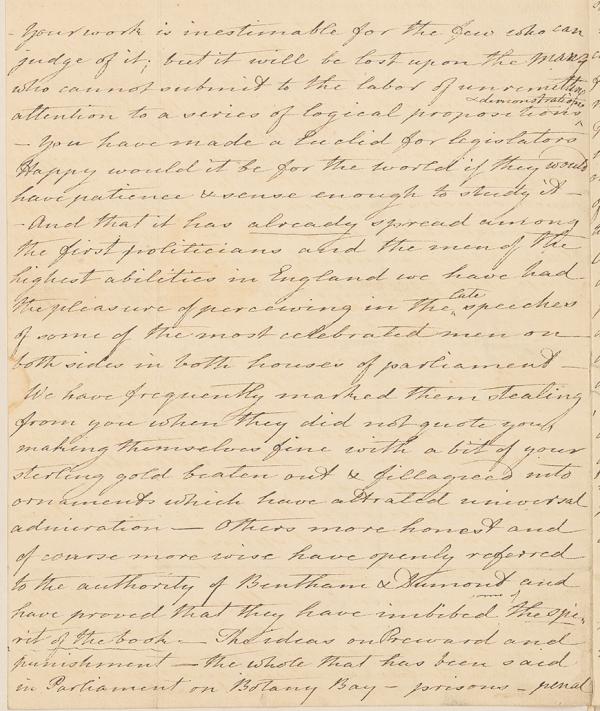 - Your work is inestimable for the few who can
judge of it; but it will be lost upon the many
who cannot submit to the labor of unremitting
& demonstrations
attention to a series of logical propositions ^
- You have made a Euclid for legislators
Happy would it be for the world if they would
have patience & sense enough to study it -
- And that it has already spread among
the first politicians and the men of the
highest abilities in England we have had
late
the pleasure of perceiving in the ^ speeches
of some of the most celebrated men on
both sides in both houses of parliament -
We have frequently marked them stealing
from you when they did not quote you,
making themselves fine with a bit of your
sterling gold beaten out & fillagreed into
ornaments which have attrated universal
admiration - Others more honest and
of course more wise have openly referred
to the authority of Bentham & Dumont and
have proved that they have imbibed the spi-
rit of the book - The ideas on Reward and
punishment - the whole that has been said
in Parliament on Botany Bay - prisons - penal